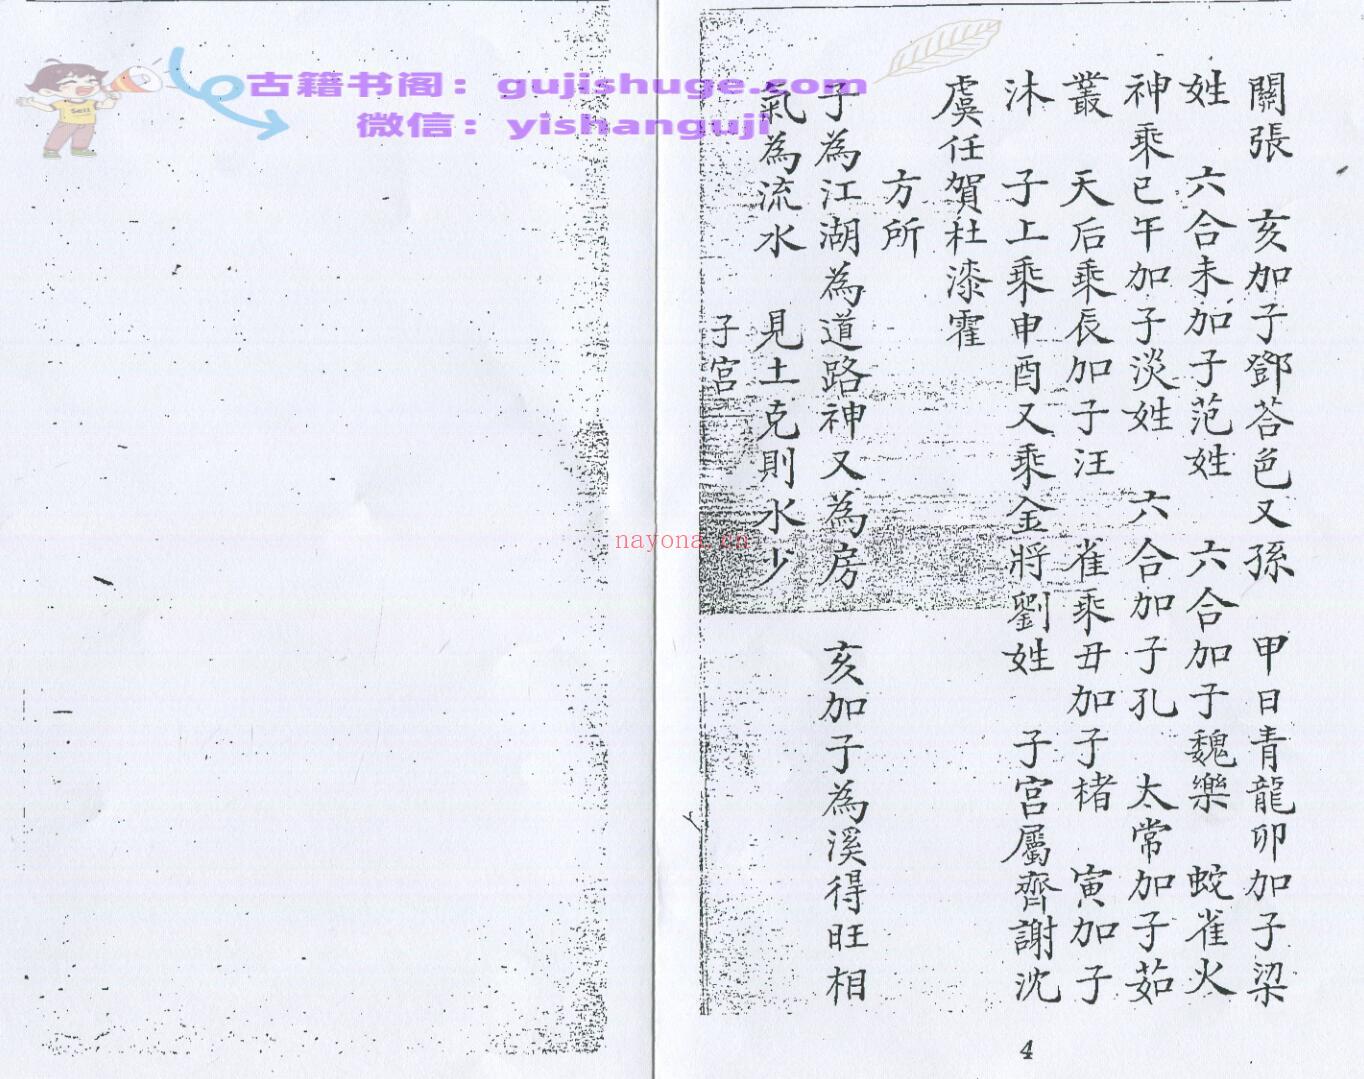 古籍书阁：gujishuge.com
微信：yishanguji
Sell
關張　亥加子鄧荅邑又孫　甲日青龍卯加子梁
姓　六合未加子范姓　六合加子魏樂　蛟雀火
神乘巳午加子淡姓　六合加子孔　太常加子茹
叢　天后乘辰加子汪　雀乘丑加子楮　寅加子
沐　子上乘申酉又乘金將劉姓　子宮屬齊謝沈
虞任賀杜漆霍
方所
子為江湖為道路神又為房　亥加子為溪得旺相
氣為流水　見土克則水少
子宮
nayona.cn
4